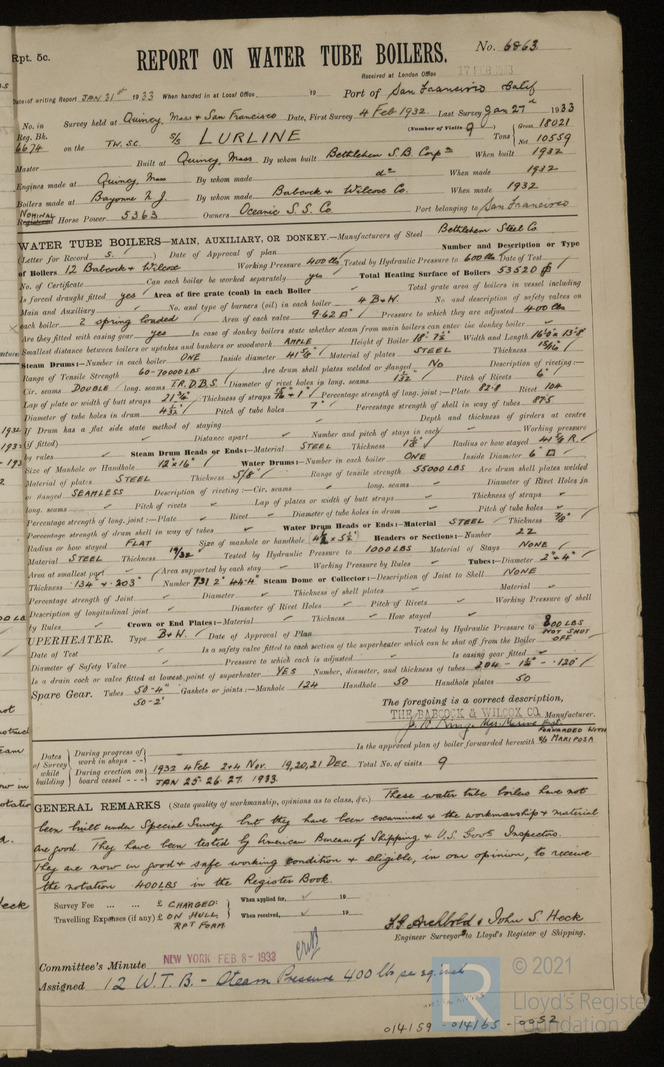 Rpt. 5c.
REPORT ON WATER TUBE BOILERS.
No. 6863
Received at London Office
Date of writing Report JAN 31st 1933 When handed in at Local Office 19 Port of San Francisco Calif
No. in Survey held at Quincy, Mass & San Francisco Date, First Survey 4 Feb 1932. Last Survey Jan 27th 1933
Reg. Bk. (Number of Visits 9) Gross 18021
6674 on the TW. SC. S/S LURLINE Tons Net 10559
Master Built at Quincy, Mass By whom built Bethlehem S.B. Corpn When built 1932
Engines made at Quincy, Mass By whom made do When made 1932
Boilers made at Bayonne N.J. By whom made Babcock & Wilcox Co. When made 1932
NOMINAL Registered Horse Power 5363 Owners Oceanic S.S. Co Port belonging to San Francisco
WATER TUBE BOILERS—MAIN, AUXILIARY, OR DONKEY.—Manufacturers of Steel Bethlehem Steel Co.
(Letter for Record S.) Date of Approval of plan Number and Description or Type
of Boilers 12 Babcock & Wilcox Working Pressure 400 lbs Tested by Hydraulic Pressure to 600 lbs Date of Test
No. of Certificate Can each boiler be worked separately yes Total Heating Surface of Boilers 53520
Is forced draught fitted yes Area of fire grate (coal) in each Boiler Total grate area of boilers in vessel including
Main and Auxiliary No. and type of burners (oil) in each boiler 4 B & W. No. and description of safety valves on
each boiler 2 spring loaded Area of each valve 9.62 Pressure to which they are adjusted 400 lbs
Are they fitted with easing gear yes In case of donkey boilers state whether steam from main boilers can enter the donkey boiler
Smallest distance between boilers or uptakes and bunkers or woodwork AMPLE Height of Boiler 18' 7½" Width and Length 16'9" x 13'8
Steam Drums:—Number in each boiler ONE Inside diameter 41⅞" Material of plates STEEL Thickness 15/16"
Range of Tensile Strength 60-70000 LBS Are drum shell plates welded or flanged No Description of riveting:—
Cir. seams DOUBLE long. seams T.R.D.B.S. Diameter of rivet holes in long. seams 1 1/32" Pitch of Rivets 6"
Lap of plate or width of butt straps 21¾" Thickness of straps Percentage strength of long. joint:—Plate 82.8 Rivet 104
Diameter of tube holes in drum 4 1/32" Pitch of tube holes 7" Percentage strength of shell in way of tubes 87.5
If Drum has a flat side state method of staying Depth and thickness of girders at centre
(if fitted) Distance apart Number and pitch of stays in each Working pressure
by rules Steam Drum Heads or Ends:—Material STEEL Thickness Radius or how stayed 41⅞ R.
Size of Manhole or Handhole 12" x 16" Water Drums:—Number in each boiler ONE Inside Diameter 6"
Material of plates STEEL Thickness 5/8" Range of tensile strength 55000 LBS Are drum shell plates welded
or flanged SEAMLESS Description of riveting:—Cir. seams long. seams Diameter of Rivet Holes in
long. seams Pitch of rivets Lap of plates or width of butt straps Thickness of straps
Percentage strength of long. joint:—Plate Rivet Diameter of tube holes in drum Pitch of tube holes
Percentage strength of drum shell in way of tubes Water Drum Heads or Ends:—Material STEEL Thickness
Radius or how stayed FLAT Size of manhole or handhole Headers or Sections:—Number 22
Material STEEL Thickness 19/32" Tested by Hydraulic Pressure to 1000 LBS Material of Stays NONE
Area at smallest part Area supported by each stay Working Pressure by Rules Tubes:—Diameter 2" & 4"
Thickness .134" & .203" Number 731 2" 44-4" Steam Dome or Collector:—Description of Joint to Shell NONE
Percentage strength of Joint Diameter Thickness of shell plates Material
Description of longitudinal joint Diameter of Rivet Holes Pitch of Rivets Working Pressure of shell
by Rules Crown or End Plates:—Material Thickness How stayed
UPERHEATER. Type B & W. Date of Approval of Plan Tested by Hydraulic Pressure to 800 LBS
Date of Test Is a safety valve fitted to each section of the superheater which can be shut off from the Boiler NOT SHUT OFF
Diameter of Safety Valve Pressure to which each is adjusted Is easing gear fitted
Is a drain cock or valve fitted at lowest point of superheater YES Number, diameter, and thickness of tubes 204 - 1¼" - .120"
Spare Gear. Tubes 50-4" Gaskets or joints:—Manhole 124 Handhole 50 Handhole plates 50
50-2"
The foregoing is a correct description,
THE BABCOCK & WILCOX CO. Manufacturer.
Dates of Survey while building During progress of work in shops - - Is the approved plan of boiler forwarded herewith FORWARDED WITH S/S MARIPOSA
During erection on board vessel - - - 1932 4 Feb 2 & 4 Nov. 19, 20, 21 DEC. Total No. of visits 9
JAN 25-26-27. 1933.
GENERAL REMARKS (State quality of workmanship, opinions as to class, &c.) These water tube boilers have not
been built under Special Survey but they have been examined & the workmanship & material
are good. They have been tested by American Bureau of Shipping & U.S. Govt Inspectors.
They are now in good & safe working condition & eligible, in our opinion, to receive
the notation 400 LBS in the Register Book.
Survey Fee ... ... £ CHARGED When applied for, 19
Travelling Expenses (if any) £ ON HULL When received, 19
RPT FORM
F.G. Archbold & John S. Heck
Engineer Surveyors to Lloyd's Register of Shipping.
Committee's Minute NEW YORK FEB 8 - 1933
Assigned 12 W.T.B. - Steam Pressure 400 lbs per sq. inch
LR
© 2021
Lloyd's Register
Foundation
014159 - 014165 - 0052